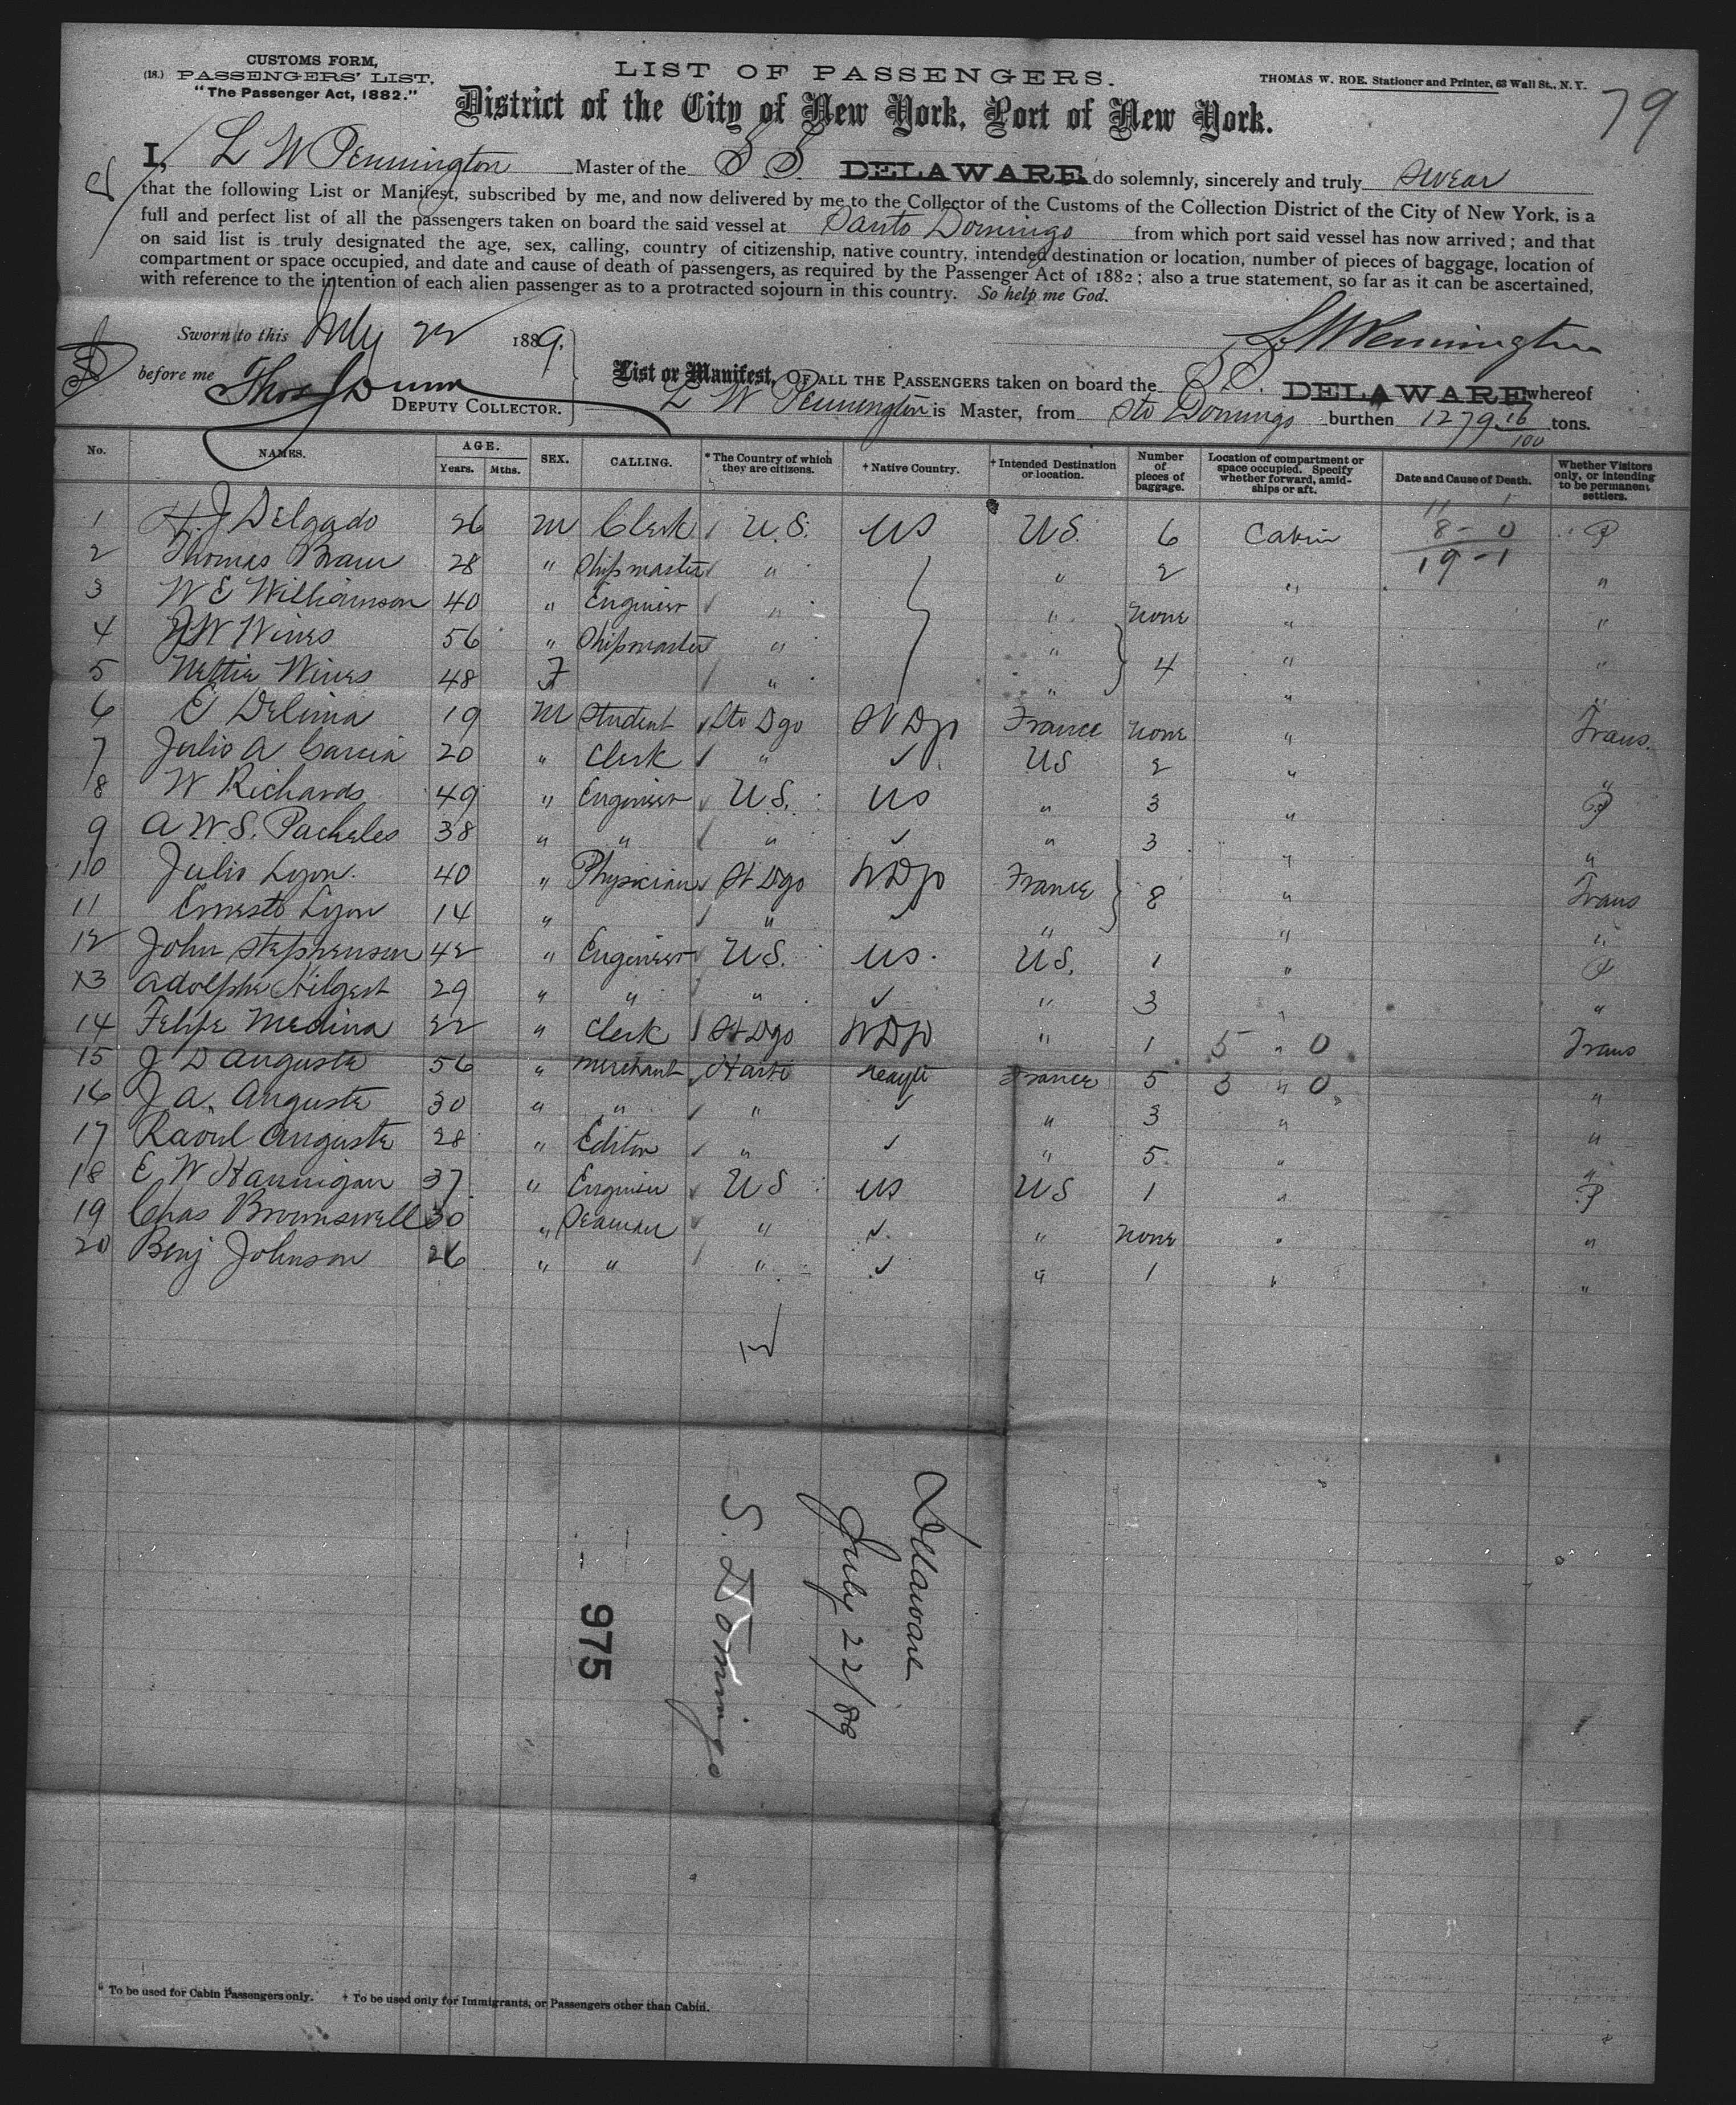 CUSTOMS FORM,
(18.) PASSENGERS' LIST.
"The Passenger Act, 1882."
LIST OF PASSENGERS.
THOMAS W. ROE. Stationer and Printer, 63 Wall St., N. Y.
79
District of the City of New York, Port of New York.
I, L W Pennington Master of the S S. DELAWARE do solemnly, sincerely and truly swear
that the following List or Manifest, subscribed by me, and now delivered by me to the Collector of the Customs of the Collection District of the City of New York, is a
full and perfect list of all the passengers taken on board the said vessel at Santo Domingo from which port said vessel has now arrived; and that
on said list is truly designated the age, sex, calling, country of citizenship, native country, intended destination or location, number of pieces of baggage, location of
compartment or space occupied, and date and cause of death of passengers, as required by the Passenger Act of 1882; also a true statement, so far as it can be ascertained,
with reference to the intention of each alien passenger as to a protracted sojourn in this country. So help me God.
Sworn to this July 22 1889,
L W Pennington
before me Thos Dunn
DEPUTY COLLECTOR.
List or Manifest, OF ALL THE PASSENGERS taken on board the S.S. DELAWARE whereof
L W Pennington is Master, from Sto Domingo burthen 1279 16/100 tons.
No. NAMES. AGE. Years. Mths. SEX. CALLING. * The Country of which they are citizens. † Native Country. † Intended Destination or location. Number of pieces of baggage. Location of compartment or space occupied. Specify whether forward, amidships or aft. Date and Cause of Death. Whether Visitors only, or intending to be permanent settlers.
11 1
1 H. J Delgado 26 M Clerk U.S. US US. 6 Cabin 8 - 0 P
2 Thomas Braun 28 " Shipmaster " " 2 " 19 - 1 "
3 W E Williamson 40 " Engineer " " none " "
4 J W Wines 56 " Shipmaster " " 4 " "
5 Nettie Wines 48 F " " " "
6 E Delima 19 M Student Sto Dgo St Dgo France none " Trans.
7 Julio A Garcia 20 " Clerk " ✓ US 2 " "
8 W Richards 49 " Engineer U S. US " 3 " P
9 A W S. Pacheles 38 " " " ✓ " 3 " "
10 Julio Lyon. 40 " Physician St Dgo St Dgo France 8 " Trans
11 Ernesto Lyon 14 " " ✓ " " "
12 John Stephenson 42 " Engineer U.S. US. U.S. 1 " P
13 Adolphe Hilgert 29 " " " ✓ " 3 " "
14 Felipe Medina 22 " Clerk St Dgo St Dgo " 1 5 " 0 Trans
15 J D Auguste 56 " Merchant Haiti Hayti France 5 3 " 0 "
16 J A. Auguste 30 " " " ✓ " 3 " "
17 Raoul Auguste 28 " Editor " ✓ " 5 " "
18 E W Hannigan 37 " Engineer U S US US 1 " P
19 Chas Brownswell 30 " Seaman " ✓ " none " "
20 Benj Johnson 26 " " " ✓ " 1 " "
Delaware
July 22/89
S. Domingo
975
* To be used for Cabin Passengers only. † To be used only for Immigrants, or Passengers other than Cabin.